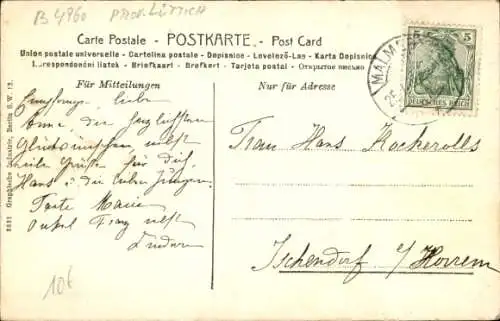 B 4960 PROV. LÜTTICH
Carte Postale - POSTKARTE - Post Card
Union postale universelle - Cartolina postale - Dopisnice - Levelező-Lap - Karta Dopisnice
1. respondenčni listek - Briefkaart - Brefkort - Tarjeta postal - Открытое письмо
Für Mitteilungen
Nur für Adresse
MALM
25
5
DEUTSCHES REICH
liebe
Anna die herzlichsten
Glückwünschen nebst
viele Grüße für dich
Hans & die lieben Jungen
Tante Maria
Onkel Franz nebst
Kinder
Frau Hans Kockerolls
Ichendorf e/ Horrem
5531 Graphische Industrie, Berlin S.W. 12.
106